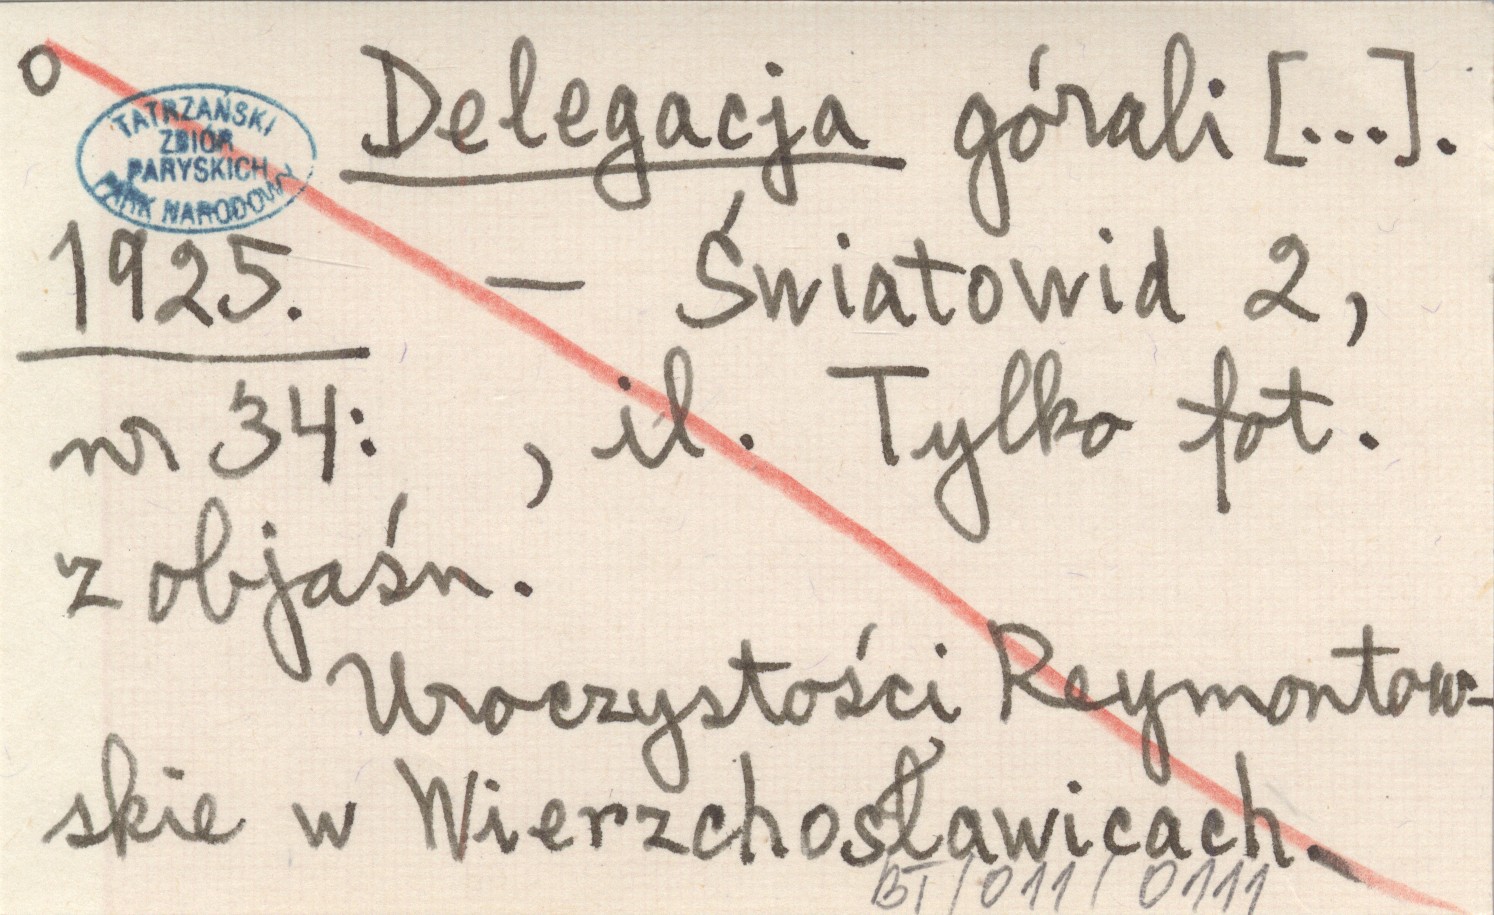 o
TATRZAŃSKI
ZBIÓR
PARYSKICH
PARK NARODOWY
Delegacja górali [...].
1925. — Światowid 2,
nr 34: , il. Tylko fot.
z objaśn.
Uroczystości Reymontow-
skie w Wierzchosławicach.
BT/011/0111